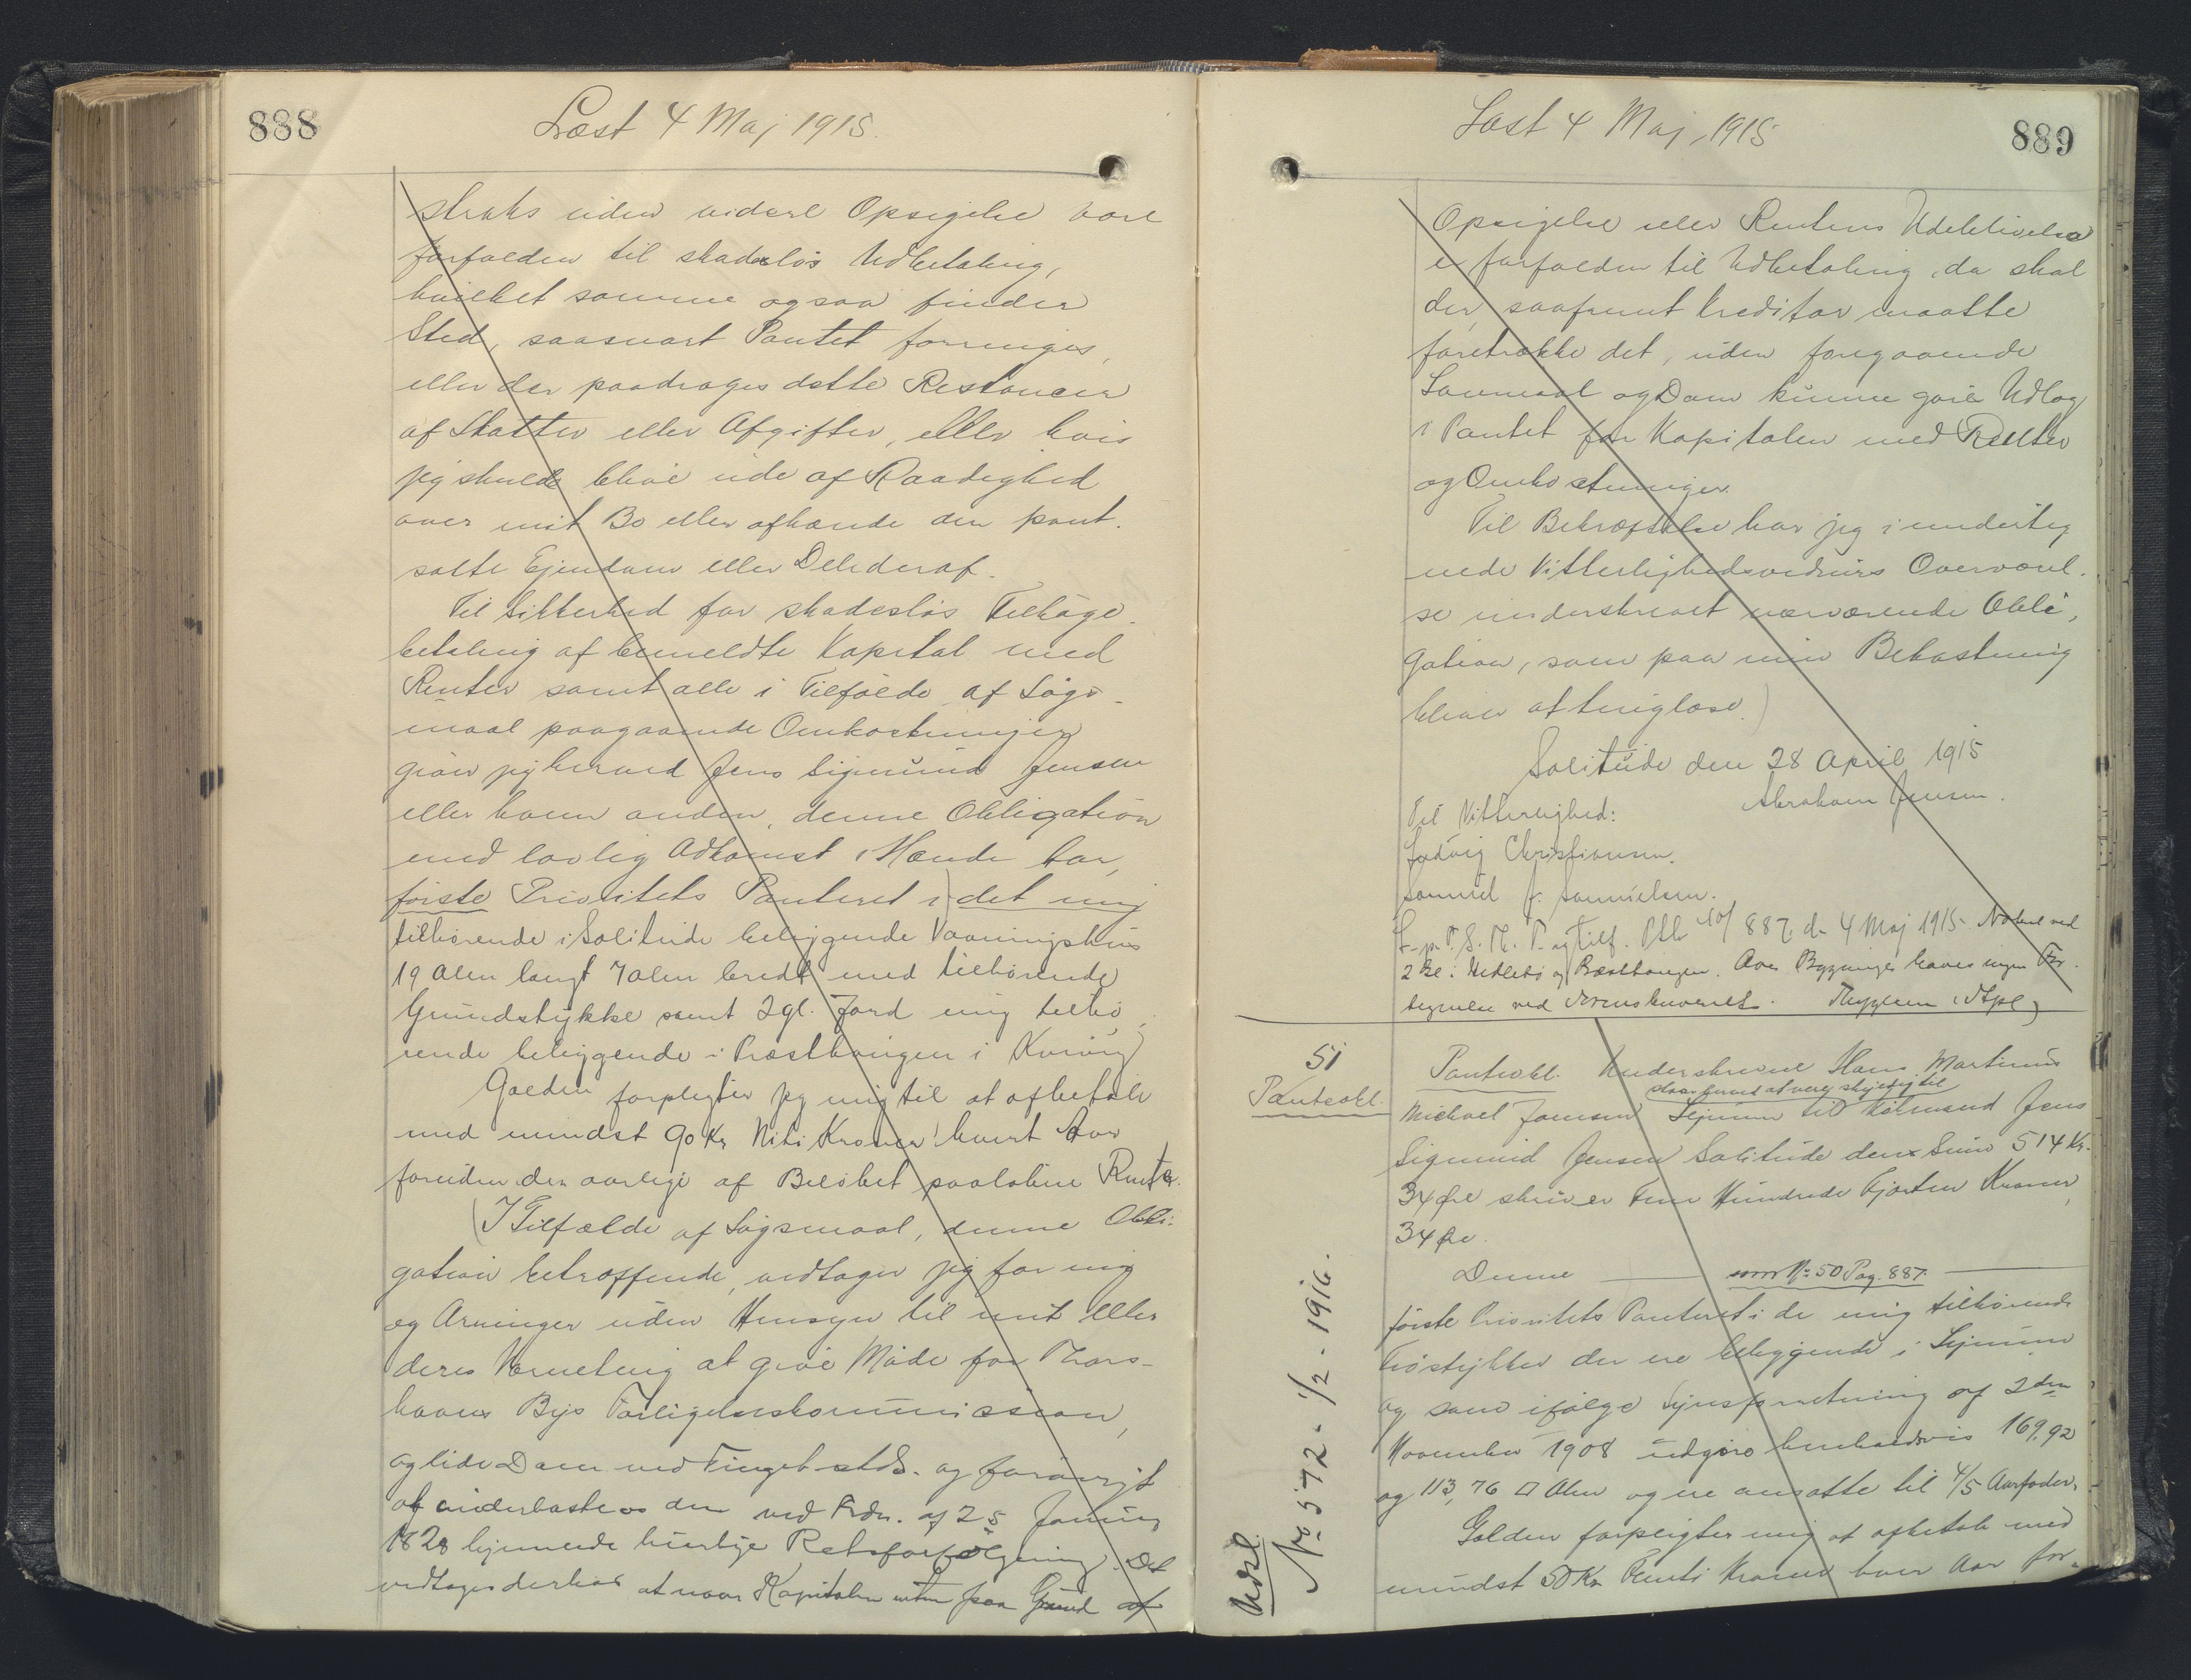 888
Læst 4 Maj 1915.
straks uden videre Opsigelse være
forfalden til skadesløs Udbetaling,
hvilket samme ogsaa finder
Sted, saasnart Pantet forringes,
eller der paadrages dette Restancer
af Skatter eller Afgifter, eller hvis
jeg skulde blive ude af Raadighed
over mit Bo eller afhænde den pant-
satte Ejendom eller Dele deraf.
Til Sikkerhed for skadesløs Tilbage-
betaling af bemeldte Kapital med
Renter samt alle i Tilfælde af Søgs-
maal paagaaende Omkostninger
giver jeg herved Jens Sigmund Jensen
eller hvem anden, denne Obligation
med lovlig Adkomst i Hænde har,
første Prioritets Panteret i det mig
tilhørende i Solitude beliggende Vaaningshus
19 Alen langt 7 Alen bredt med tilhørende
Grundstykke samt 2 gl. Jord mig tilhø-
rende beliggende i Præsthaugen i Kvivig
Gælden forpligter jeg mig til at afbetale
med mindst 90 Kr. Niti Kroner hvert Aar
foruden den aarlige af Beløbet paaløbne Rente.
(I Tilfælde af Søgsmaal, denne Obli-
gation betræffende, vedtager jeg for mig
og Arvinger uden Hensyn til mit eller
deres Værneting at give Møde for Thors-
havns Bys Forligelseskommission,
og lide Dom ved Tinget sstds. og forøvrigt
at underkaste os den ved Frdn. af 25 Januar
1828 hjemlede hurtige Retsforfølgning. Det
vedtages derhos at naar Kapitalen enten paa Grund af
889
Læst 4 Maj 1915
Opsigelse eller Rentens Udeblivelse
er forfalden til Udbetaling, da skal
der, saafremt Kreditor maatte
foretrække det, uden foregaaende
Søgsmaal og Dom kunne gøres Udlæg
i Pantet for Kapitalen med Renter
og Omkostninger.
Til Bekræftelse har jeg i underteg
nede Vitterlighedsvidners Overværel-
se underskrevet nærværende Obli-
gation, som paa min Bekostning
bliver at tinglæse.)
Solitude den 28 April 1915
Abraham Jensen.
Til Vitterlighed:
Ludvig Christiansen.
Samuel J. Samuelsen.
887 d. 4 Maj 1915. Noteret ved
Præsthaugen. Over Bygninger haves ingen For-
51
Pantobl.
Pantobl. Underskrevne Hans Martinus
Michael Joensen Lejnum staar herved at være skyldig til Købmand Jens
Sigmund Jensen Solitude den Sum 514 Kr.
34 Øre skriver Fem Hundrede Fjorten Kroner,
34 Øre.
Denne — som No 50 Pag. 887. —
første Prioritets Panteret i de mig tilhørende
Trøstykker der ere beliggende i Lejnum
og som ifølge Synsforretning af 2den
November 1908 udgøre henholdsvis 169,92
og 113,76 □ Alen og ere ansatte til 4/5 Aarfoder.
Gælden forpligter mig at afbetale med
mindst 50 Kr. Femti Kroner hver Aar for-
Udsl.
No 572 - 1/2 - 1916.